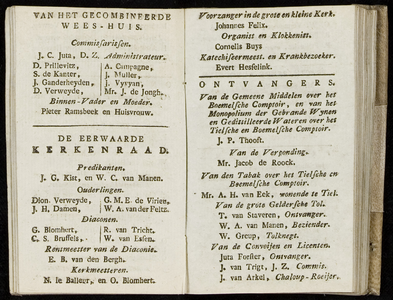 VAN HET GECOMBINEERDE
WEES-HUIS.
Commissarissen.
J. C. Juta, D. Z. Administrateur.
D. Prillevitz, A. Campagne,
S. de Kanter, J. Muller,
J. Ganderheyden, J. Vyryan,
D. Verweyde, Mr. J. de Jongh.
Binnen-Vader en Moeder.
Pieter Ramsbeek en Huisvrouw.
DE EERWAARDE
KERKENRAAD.
Predikanten.
J. G. Kist, en W. C. van Manen.
Ouderlingen.
Dion. Verweyde, G. M. E. de Virieu,
J. H. Damen, W. A. van der Feltz.
Diaconen.
G. Blomhert, R. van Tricht,
C. S. Bruffels, W. van Essen.
Rentmeester van de Diaconie.
E. B. van den Bergh.
Kerkmeesteren.
N. le Balleur, en O. Blomhert.
Voorzanger in de groote en kleine Kerk.
Johannes Felix.
Organist en Klokkenist.
Cornelis Buys
Katechiseermeest. en Krankbezoeker.
Evert Hesselink.
ONTVANGERS.
Van de Gemeene Middelen over het
Boemelsche Comptoir, en van het
Monopolium der Gebrande Wynen
en Gedistilleerde Wateren over het
Tielsche en Boemelsche Comptoir.
J. P. Thooft.
Van de Verponding.
Mr. Jacob de Roock.
Van den Tabak over het Tielsche en
Boemelsche Comptoir.
Mr. A. H. van Eek, wonende te Tiel.
Van de groote Geldersche Tol.
T. van Staveren, Ontvanger.
W. A. van Manen, Beziender.
W. Greup, Tolknegt.
Van de Convoijen en Licenten.
Juta Foester, Ontvanger.
J. van Trigt, J. Z. Commis.
J. van Arkel, Chaloup-Roeijer.